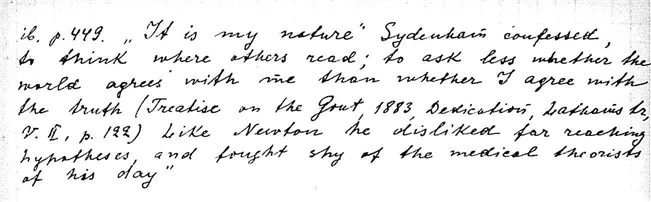 ib. p. 449. „It is my nature" Sydenham confessed,
to think where others read; to ask less whether the
world agrees with me than whether I agree with
the truth (Treatise on the Gout, 1883, Dedication, Lathams tr,
V. II, p. 122) Like Newton he disliked far reaching
hypotheses, and fought shy of the medical theorists
of his day"